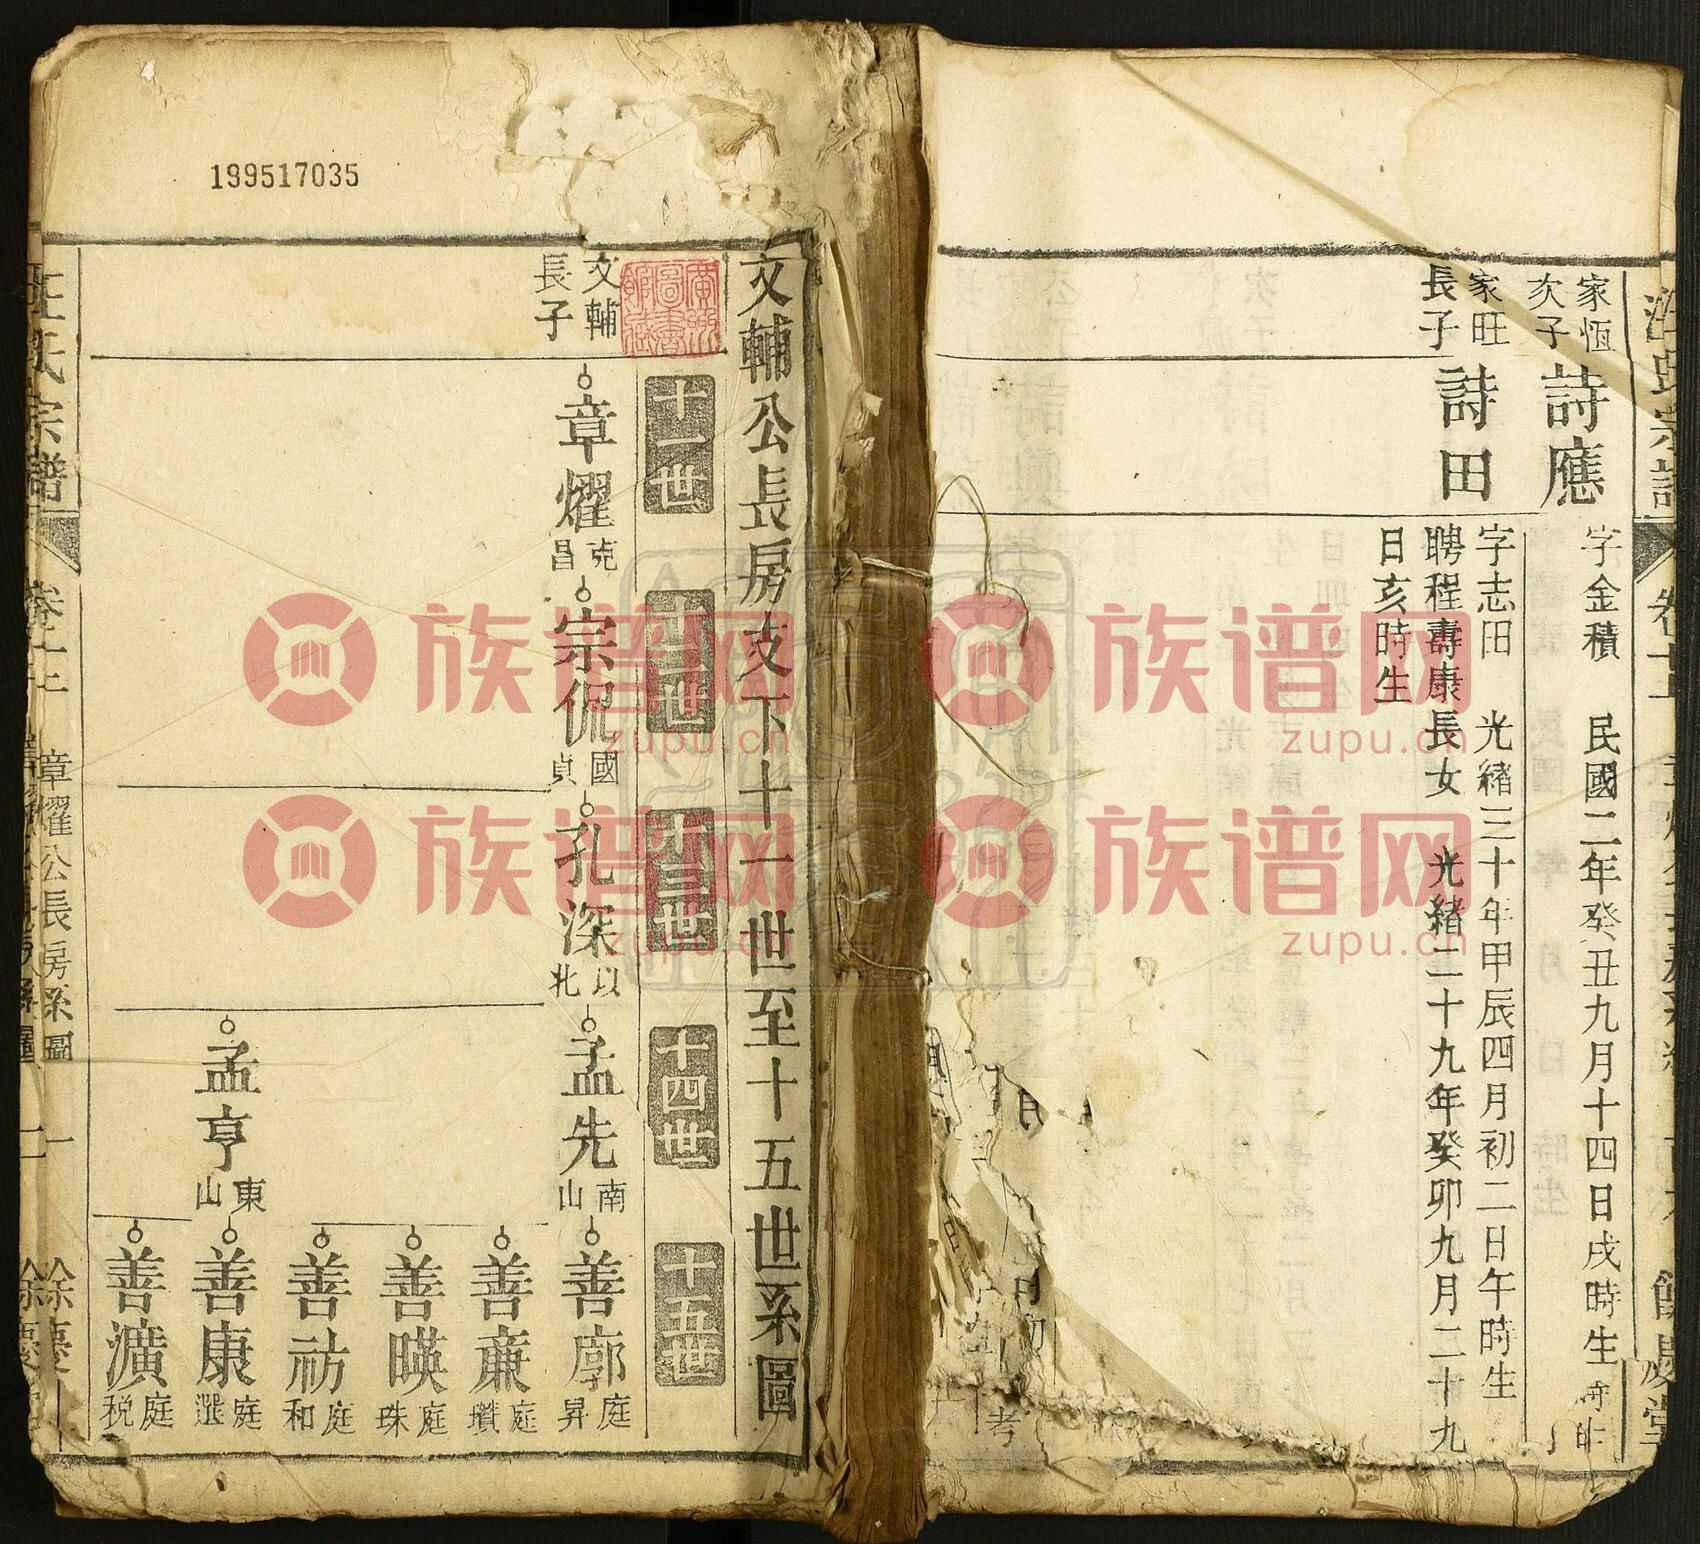 家恆
次子
詩應
字金積 民國二年癸丑九月十四日戌時生
家旺
長子
詩田
字志田 光緒三十年甲辰四月初二日午時生
聘程壽康長女 光緒二十九年癸卯九月二十九
日亥時生
文輔公長房支下十一世至十五世系圖
十一世
十二世
十三世
十四世
十五世
文輔
長子
章燿
克昌
宗侃
國貞
孔深
以北
孟先
南山
孟亨
東山
善廓
庭昇
善㢘
庭瓚
善暎
庭珠
善祊
庭和
善康
庭選
善瀇
庭税
章燿公長房系圖
199517035
族谱网
zupu.cn
族谱网
zupu.cn
族谱网
zupu.cn
族谱网
zupu.cn